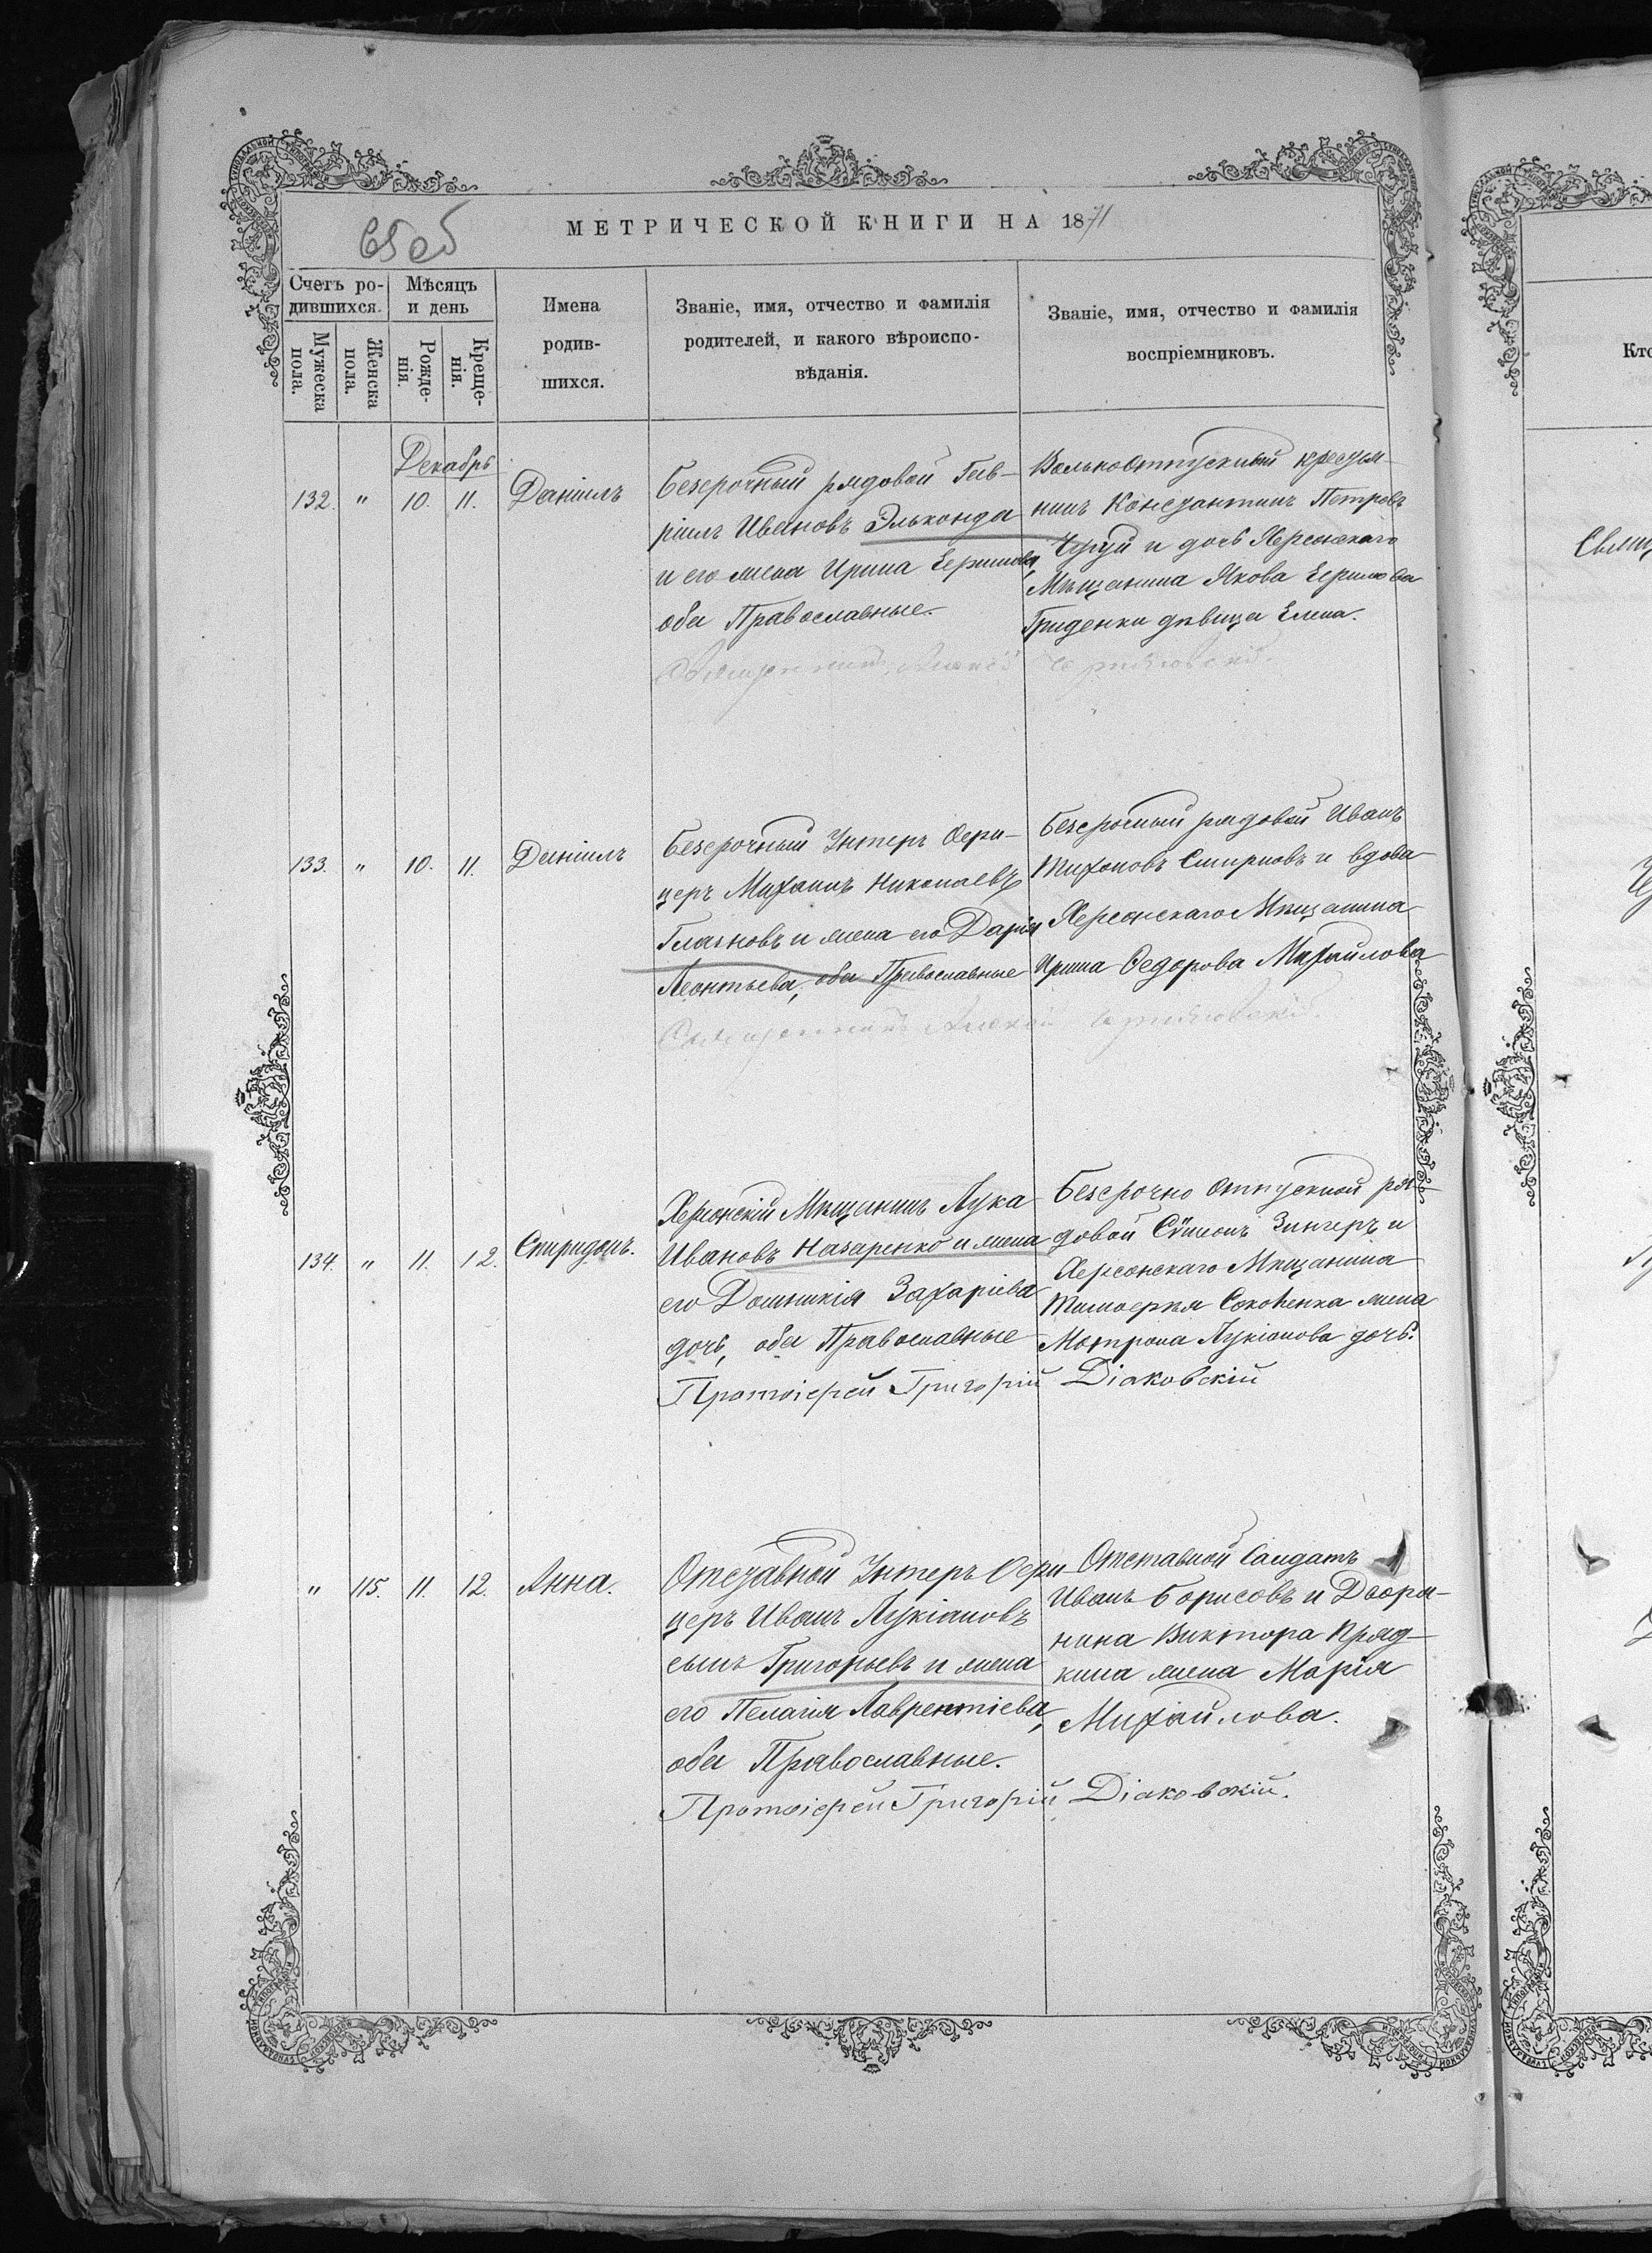 65 об
МЕТРИЧЕСКОЙ КНИГИ НА 1871
Счетъ ро-
дившихся.
Мѣсяцъ
и день
Мужеска
пола.
Женска
пола.
Рожде-
нія.
Креще-
нія.
Имена
родив-
шихся.
Званіе, имя, отчество и фамилія
родителей, и какого вѣроиспо-
вѣданія.
Званіе, имя, отчество и фамилія
воспріемниковъ.
Декабрь
132. " 10. 11. Даніилъ
Безсрочный рядовой Гав-
ріилъ Ивановъ Эльконда
и его жена Ирина Ефимова,
оба Православные.
Священникъ Алексѣй
Вольноотпускный крестья-
нинъ Константинъ Петровъ
Чуфуй и дочь Херсонскаго
Мѣщанина Якова Ефимова
Гриденки дѣвица Елена.
133. " 10. 11. Даніилъ
Безсрочный Унтеръ Офи-
церъ Михаилъ Николаевъ
Глазновъ и жена его Дарія
Леонтьева, оба Православные
Священникъ Алексѣй
Безсрочный рядовой Иванъ
Тихоновъ Смирновъ и вдова
Херсонскаго Мѣщанина
Ирина Федорова Михайлова
134. " 11. 12. Спиридонъ.
Херсонскій Мѣщанинъ Лука
Ивановъ Назаренко и жена
его Домникія Захаріева
дочь, оба Православные
Протоіерей Григорій Діаковскій
Безсрочно отпускной ря-
довой Сѵмеонъ Зингеръ и
Херсонскаго Мѣщанина
Тимофея Соколенка жена
Матрона Лукіанова дочь.
" 115. 11. 12. Анна.
Отставной Унтеръ Офи-
церъ Иванъ Лукіановъ
сынъ Григорьевъ и жена
его Пелагія Лаврентіева,
оба Православные.
Протоіерей Григорій Діаковскій.
Отставной Солдатъ
Иванъ Борисовъ и Дворя-
нина Виктора Пряд-
кина жена Марія
Михайлова.
Кто